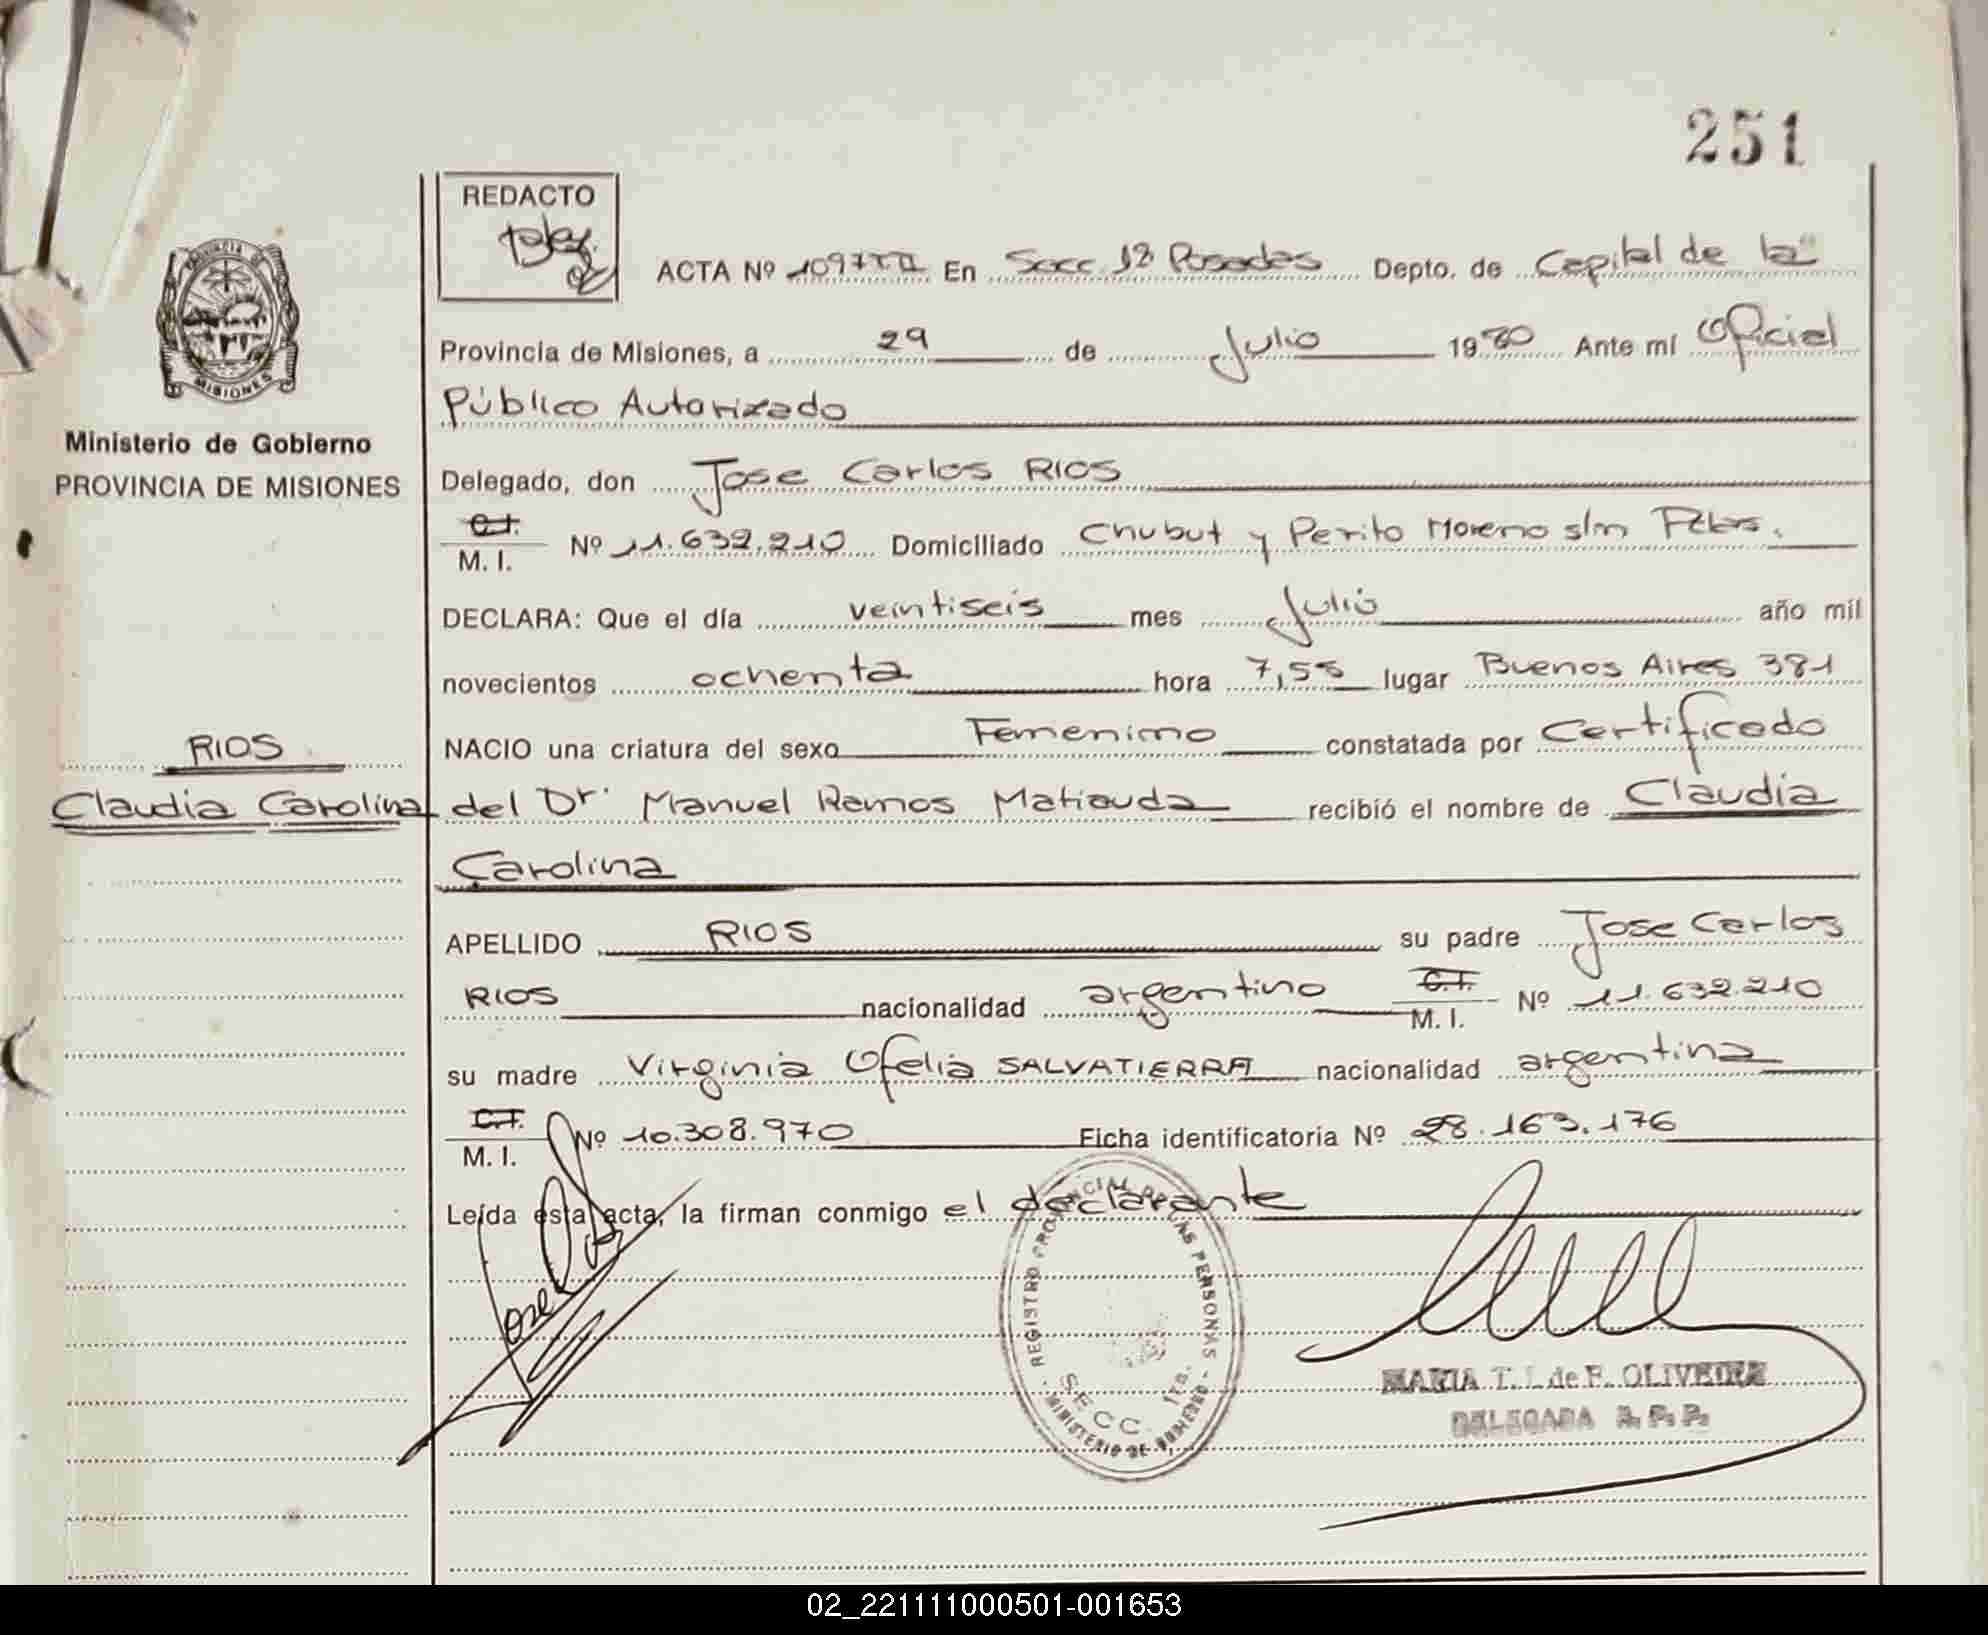 251
REDACTO
ACTA Nº 1097 En Secc. 1ª Posadas Depto. de Capital de la
Provincia de Misiones, a 29 de Julio 1980 Ante mí Oficial
Público Autorizado
PROVINCIA DE
MISIONES
Ministerio de Gobierno
PROVINCIA DE MISIONES
Delegado, don Jose Carlos RIOS
C.I.
M. I. Nº 11.632.210 Domiciliado Chubut y Perito Moreno s/n Pdas.
DECLARA: Que el día veintiseis mes Julio año mil
novecientos ochenta hora 7,55 lugar Buenos Aires 381
RIOS
NACIO una criatura del sexo Femenino constatada por Certificado
Claudia Carolina
del Dr. Manuel Ramos Matiauda recibió el nombre de Claudia
Carolina
APELLIDO RIOS su padre Jose Carlos
RIOS nacionalidad argentino C.I. M. I. Nº 11.632.210
su madre Virginia Ofelia SALVATIERRA nacionalidad argentina
C.I.
M. I. Nº 10.308.970 Ficha identificatoria Nº 28.163.176
Leída esta acta, la firman conmigo el declarante
REGISTRO PROVINCIAL DE LAS PERSONAS
SECC. 1ra.
MINISTERIO DE GOBIERNO
MARIA T. I. de F. OLIVEIRA
DELEGADA R. P. P.
02_221111000501-001653